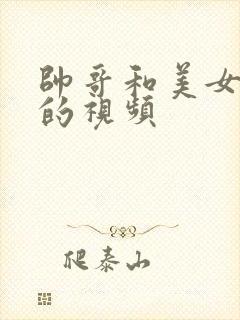 帥哥和美女
的視頻
爬泰山